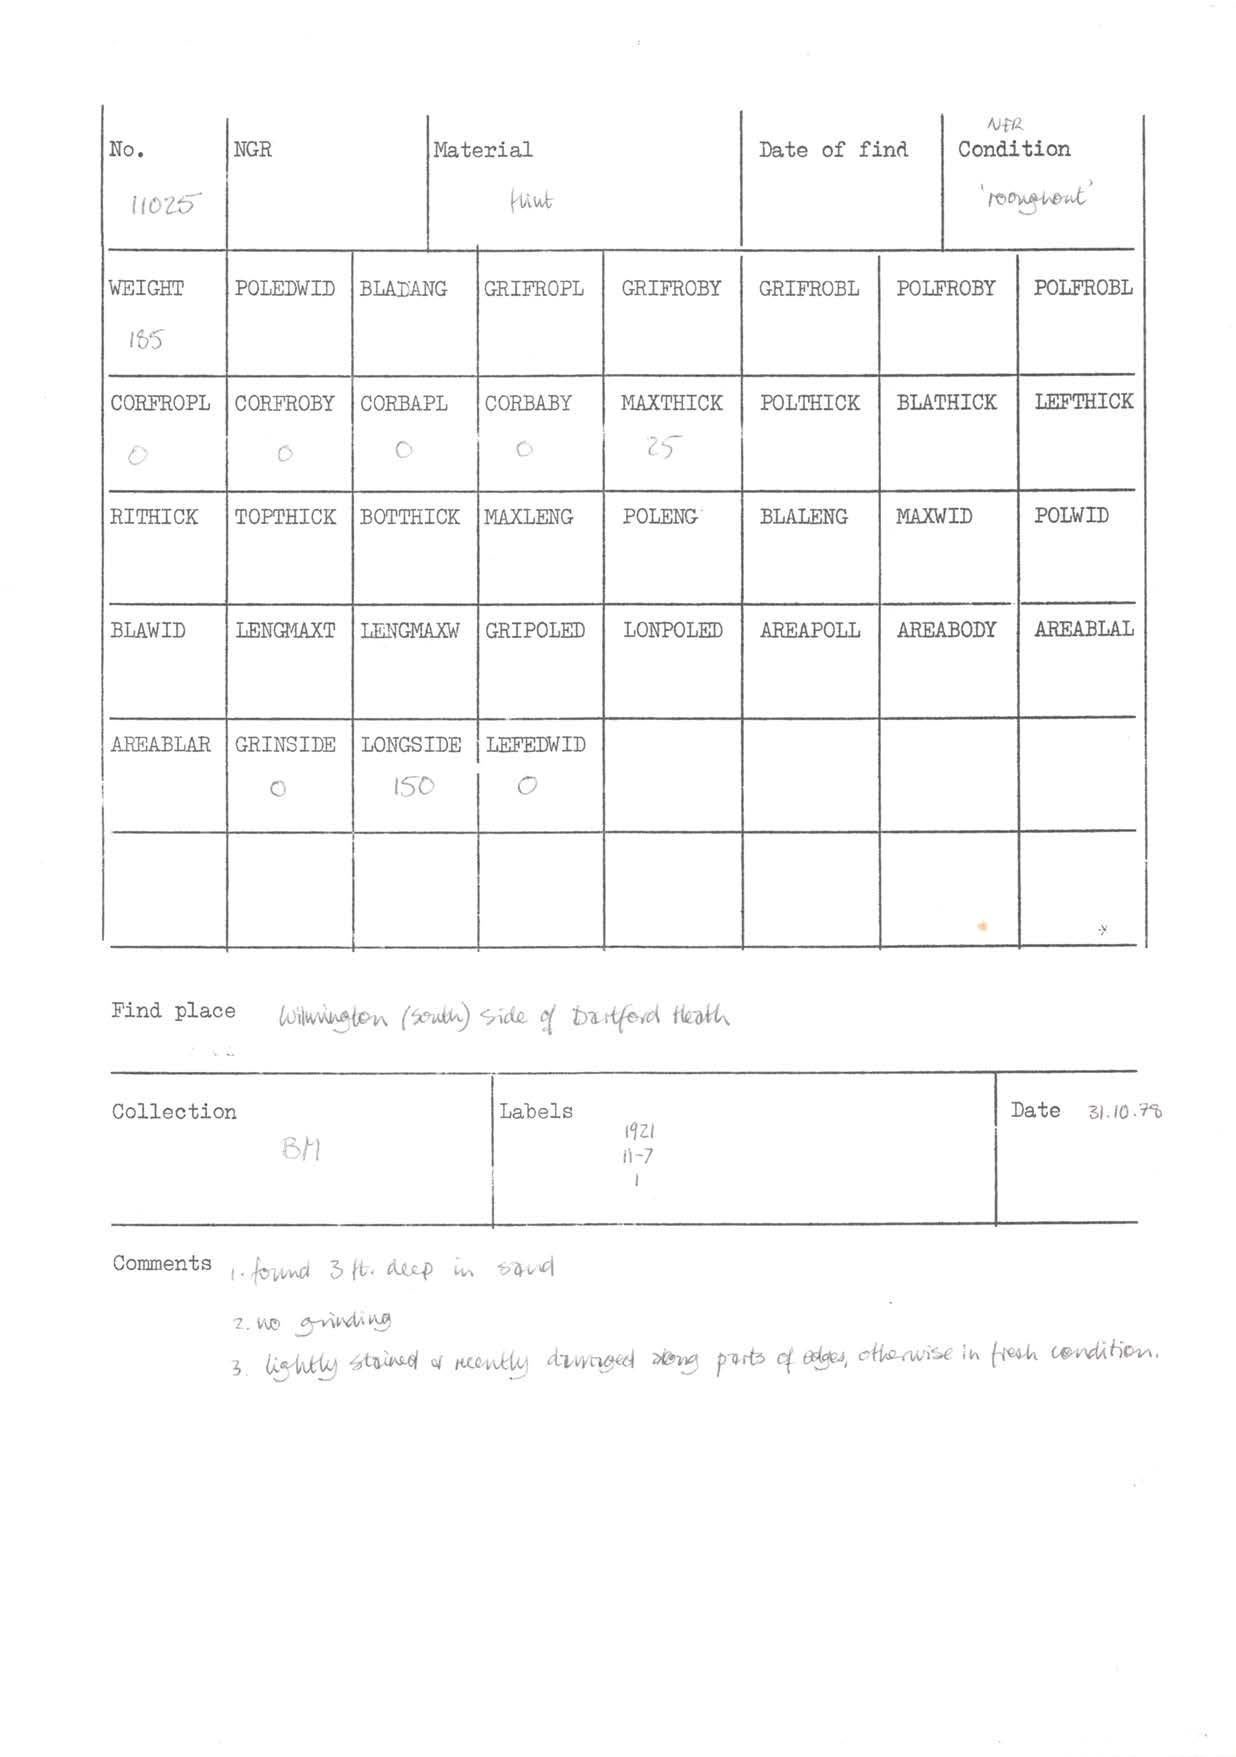 NFR
No. NGR Material Date of find Condition
11025 flint 'rooughout'
WEIGHT POLEDWID BLADANG GRIFROPL GRIFROBY GRIFROBL POLFROBY POLFROBL
185
CORFROPL CORFROBY CORBAPL CORBABY MAXTHICK POLTHICK BLATHICK LEFTHICK
0 0 0 0 25
RITHICK TOPTHICK BOTTHICK MAXLENG POLENG BLALENG MAXWID POLWID
BLAWID LENGMAXT LENGMAXW GRIPOLED LONPOLED AREAPOLL AREABODY AREABLAL
AREABLAR GRINSIDE LONGSIDE LEFEDWID
0 150 0
Find place Wilmington (south) side of Dartford Heath
Collection Labels Date 31.10.78
BM 1921
11-7
1
Comments 1. found 3 ft. deep in sand
2. no grinding
3. lightly stained & recently damaged along parts of edges, otherwise in fresh condition.